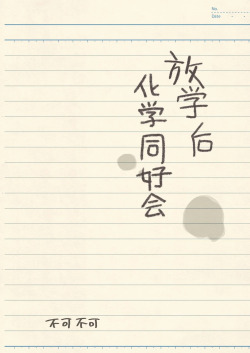 No.
Date
放学后
化学同好会
不可不可